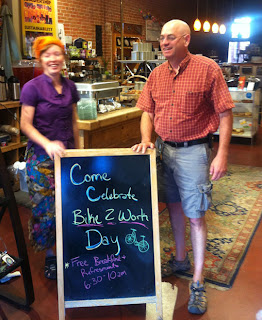 SUSTAINABILITY
Come
Celebrate
Bike 2 Work
Day
Free Breakfast +
Refreshments
6:30 - 10am